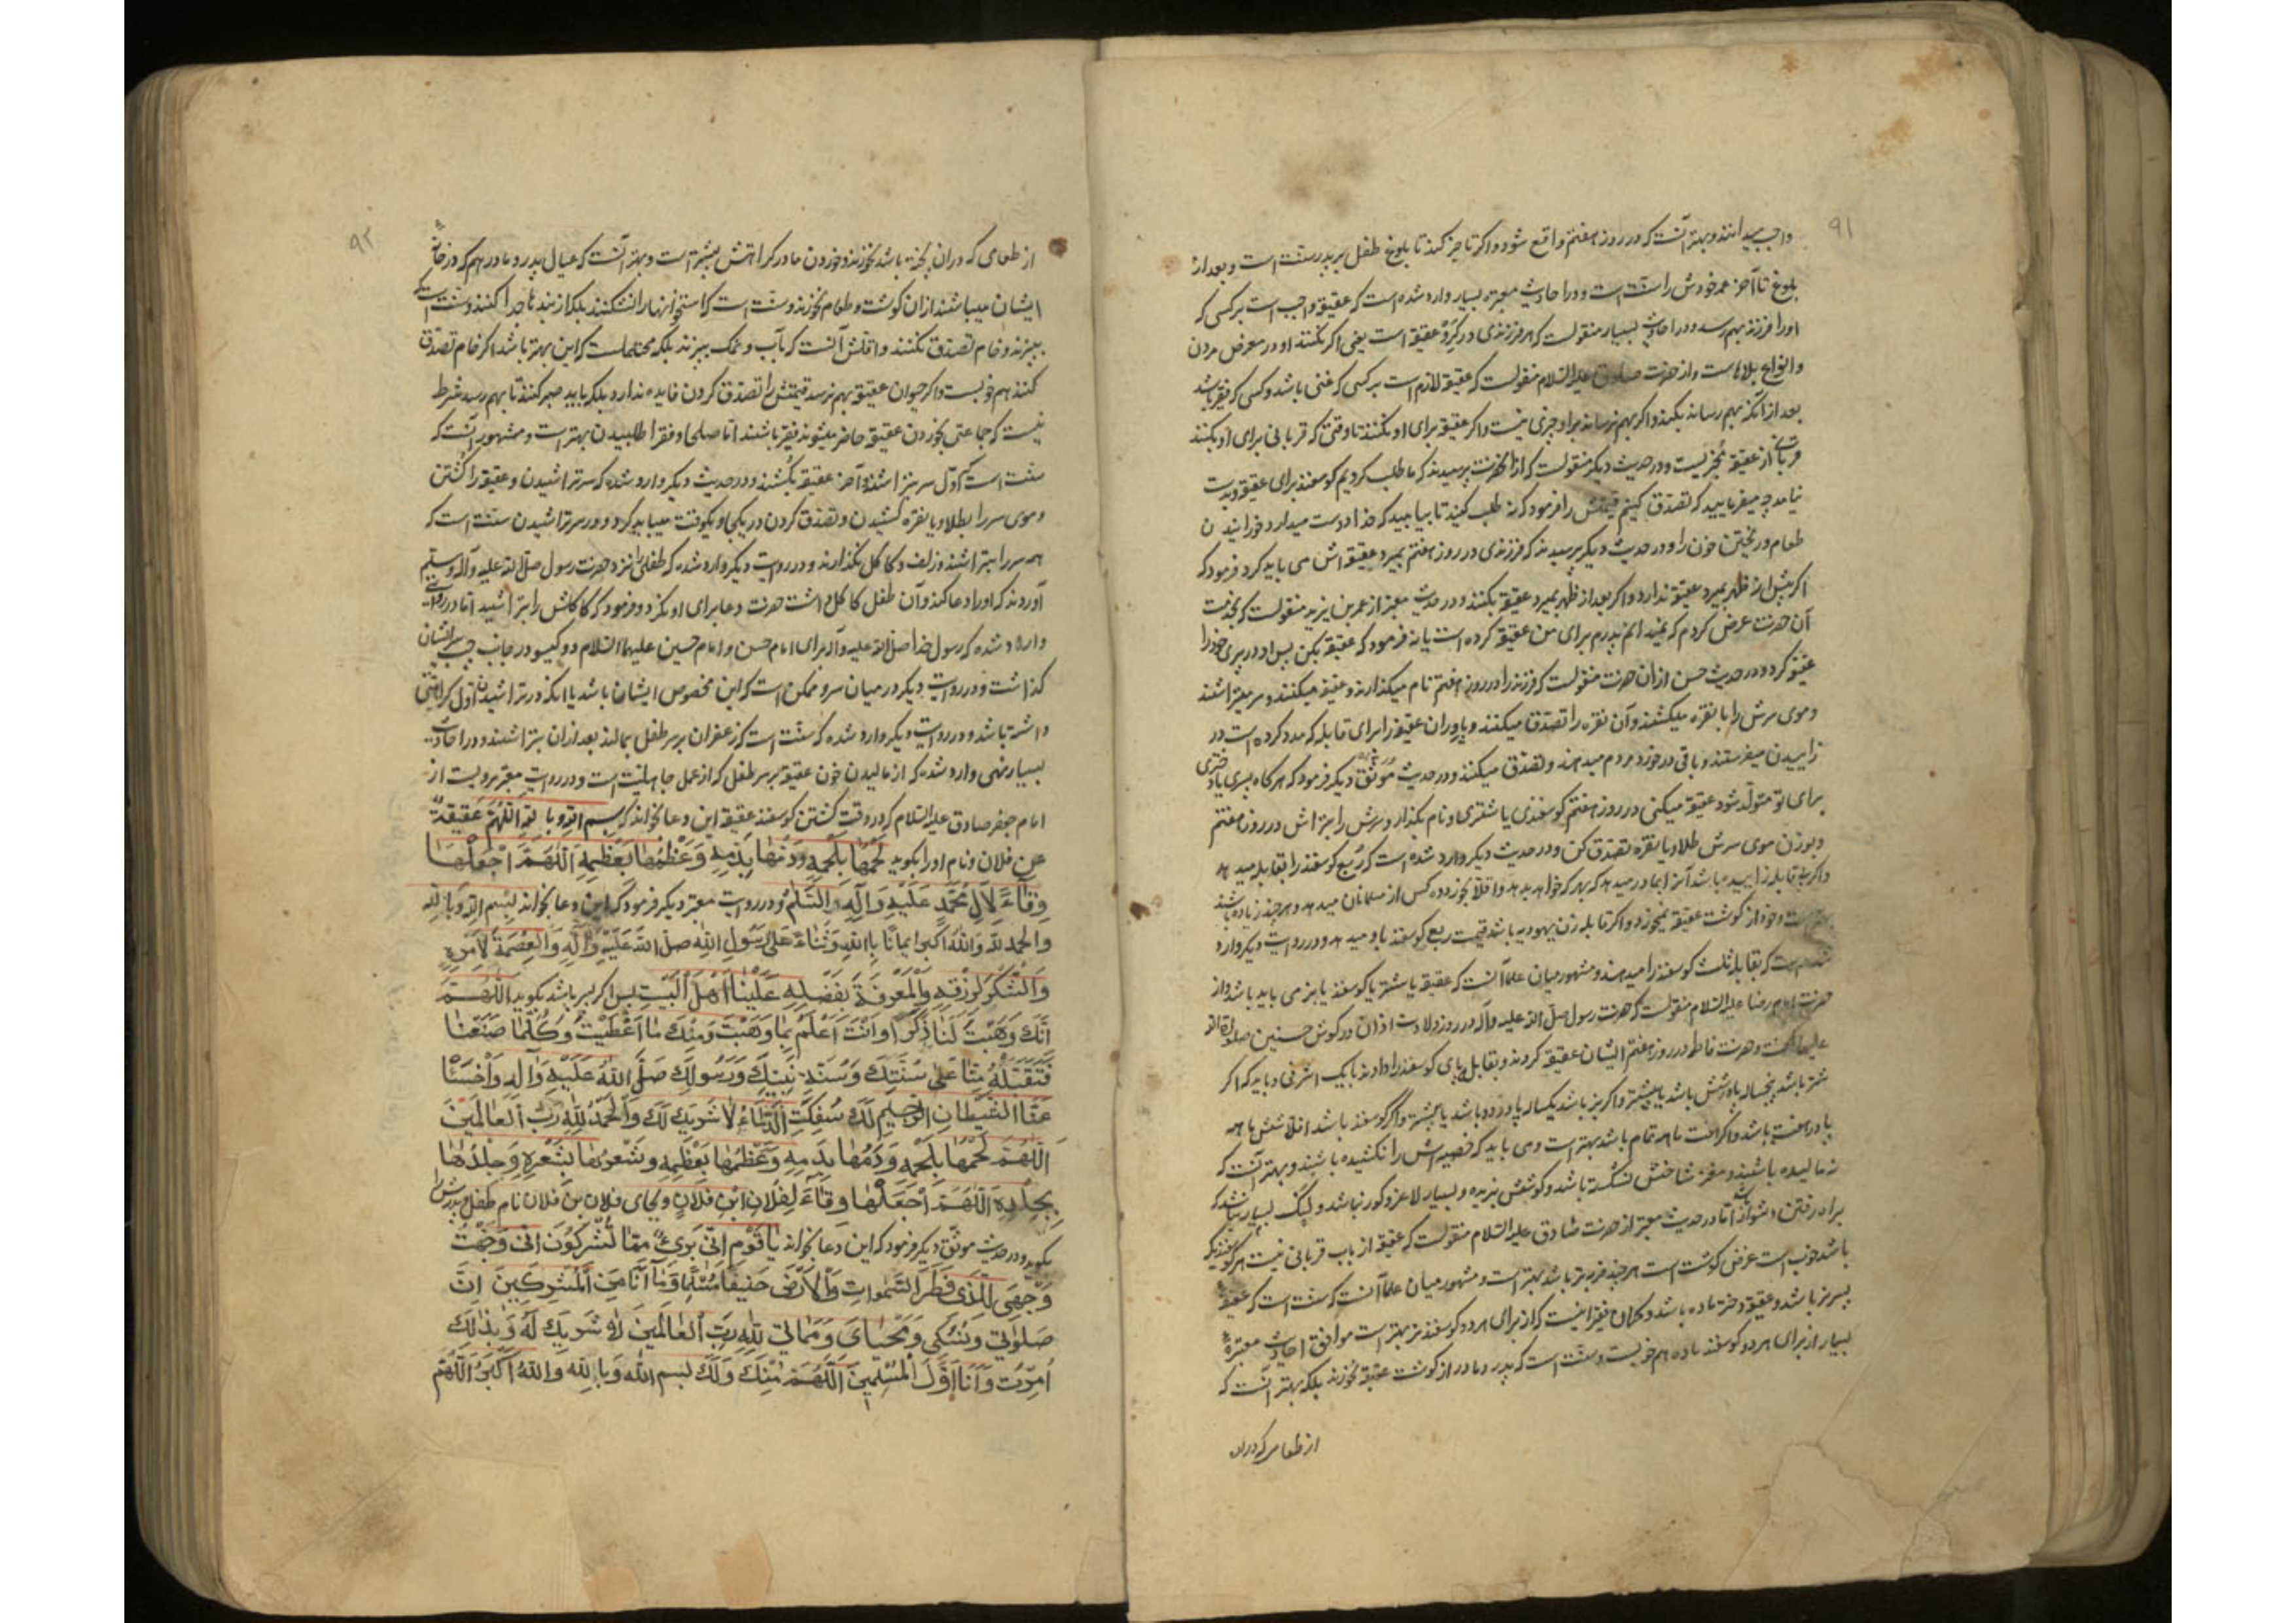 ۹۱
واجب میدانند و بهتر آنست که در روز هفتم واقع شود و اکر تاخیر کند تا بلوغ طفل بر پدر سنت است و بعد از
بلوغ تا آخر عمر خودش را سنت است و در احادیث معتبره بسیار وارد شده است که عقیقه واجب است بر کسی که
اورا فرزند بهم رسد و در احادیث بسیار منقولست که هر فرزندی در کرو عقیقه است یعنی اکر نکنند او در معرض مردن
و انواع بلاهاست و از حضرت صادق علیه السلام منقولست که عقیقه لازم است بر کسی که غنی باشد و کسی که فقیر باشد
بعد از آنکه بهم رساند بکند و اکر بهم نرساند بر او چیزی نیست و اکر عقیقه برای او نکنند تا وقتی که قربانی برای او بکنند
قربانی از عقیقه مجزیست و در حدیث دیکر منقولست که از آنحضرت پرسیدند که ما طلب کردیم کوسفند برای عقیقه و بدست
نیامد چه میفرمایید که تصدق کنیم قیمتش را فرمود که نه طلب کنید تا بیابید که خدا دوست میدارد خورانیدن
طعام و ریختن خون را و در حدیث دیکر پرسیدند که فرزندی در روز هفتم بمیرد عقیقه اش می باید کرد فرمود که
اکر پیش از ظهر بمیرد عقیقه ندارد و اکر بعد از ظهر بمیرد عقیقه بکنند و در حدیث معتبر از عمر بن یزید منقولست که بخدمت
آن حضرت عرض کردم که نمیدانم پدرم برای من عقیقه کرده است یا نه فرمود که عقیقه بکن پس او در پیری خود را
عقیقه کرد و در حدیث حسن از آن حضرت منقولست که فرزند را در روز هفتم نام میکذارند و عقیقه میکنند و سر میتراشند
و موی سرش را با نقره میکشند و آن نقره را تصدق میکنند و پا و ران عقیقه را برای قابله که مدد کرده است در
زاییدن میفرستند و باقی در خورد مردم میدهند و تصدق میکنند و در حدیث موثق دیکر فرمود که هرکاه پسری یا دختری
برای تو متولد شود عقیقه میکنی در روز هفتم کوسفندی یا شتری و نام بکذار و سرش را بتراش در روز هفتم
و بوزن موی سرش طلا و یا نقره تصدق کن و در حدیث دیکر وارد شده است که ربع کوسفند را بقابله میدهد
و اکر بی قابله زاییده باشد آنرا بمادر میدهد که بهر که خواهد بدهد و اقلا بخورد ده کس از مسلمانان میدهد و هر چند زیاده باشد
بهتر است و خود از کوشت عقیقه نمیخورد و اکر قابله زن یهودیه باشد قیمت ربع کوسفند باو میدهد و در روایت دیکر وارد
شده است که بقابله ثلث کوسفند را میدهند و مشهور میان علما آنست که عقیقه یا شتر یا کوسفند یا بز می باید باشد و از
حضرت امام رضا علیه السلام منقولست که حضرت رسول صلی الله علیه وآله در روز ولادت اذان در کوش حسنین صلوات الله
علیهما کفت و حضرت فاطمه در روز هفتم ایشان عقیقه کردند و بقابله پای کوسفند را دادند با یک اشرفی و باید که اکر
شتر باشد پنجساله یا در شش باشد یا بیشتر و اکر بز باشد یکساله یا در دو باشد یا بیشتر و اکر کوسفند باشد اقلا شش ماهه
یا در هفت باشد و اکر هفت ماهه تمام باشد بهتر است و می باید که خصیه اش را نکشیده باشند و بهتر آنست که
نمالیده باشند و مغز شاخش نشکسته باشد و کوشش نبریده و بسیار لاغر و کور نباشد و لنگ بسیار نباشد که
براه رفتن دشوار باشد اما در حدیث معتبر از حضرت صادق علیه السلام منقولست که عقیقه از باب قربانی نیست هر کوسفند که
باشد خوب است عرض کوشت است هر چند فربه تر باشد بهتر است و مشهور میان علما آنست که سنت است که عقیقه
پسر نر باشد و عقیقه دختر ماده باشد و کمان فقیر اینست که از برای هر دو کوسفند نر بهتر است موافق احادیث معتبره
بسیار از برای هر دو کوسفند ماده هم خوبست و سنت است که پدر و مادر از کوشت عقیقه نخورند بلکه بهتر آنست که
از طعامی که در ان
۹۲
از طعامی که در ان پخته باشد نخورند و خوردن مادر کراهتش بیشتر است و بهتر آنست که عیال پدر و مادر هم که در خانه
ایشان میباشند از ان کوشت و طعام نخورند و سنت است که استخوانها را نشکنند بلکه از بندها جدا کنند و سنت است که
بپزند و خام تصدق نکنند و اقلش آنست که بآب و نمک بپزند بلکه محتملست که این بهتر باشد اکر خام تصدق
کنند هم خوبست و اکر حیوان عقیقه بهم نرسد قیمتش را تصدق کردن فایده ندارد بلکه باید صبر کنند تا بهم رسد شرط
نیست که جماعتی بخوردن عقیقه حاضر میشوند فقیر باشند اما صلحا و فقرا طلبیدن بهتر است و مشهور آنست که
سنت است که اول سر بتراشند و آخر عقیقه بکشند و در حدیث دیکر وارد شده که سر تراشیدن و عقیقه را کشتن
و موی سر را بطلا و یا نقره کشیدن و تصدق کردن در یکجا و یکوقت میباید کرد و در سر تراشیدن سنت است که
همه سر را بتراشند و زلف و کاکل نکذارند و در روایت دیکر وارد شده که طفلی را نزد حضرت رسول صلی الله علیه وآله وسلم
آوردند که اورا دعا کند و آن طفل کاکل داشت حضرت دعا برای او نکرد و فرمود که کاکلش را بتراشید اما در روایتی
وارد شده که رسول خدا صلی الله علیه وآله برای امام حسن و امام حسین علیهما السلام دو کیسو در جانب چپ سر ایشان
کذاشت و در روایت دیکر در میان سر و ممکن است که این مخصوص ایشان باشد یا آنکه در تراشیدن اول کراهتی
داشته باشد و در روایت دیکر وارد شده که سنت است که زعفران بر سر طفل بمالند بعد از ان بتراشند و در احادیث
بسیار نهی وارد شده که از مالیدن خون عقیقه بر سر طفل که از عمل جاهلیت است و در روایت معتبر مرویست از
امام جعفر صادق علیه السلام که در وقت کشتن کوسفند عقیقه این دعا بخواند که بسم الله و بالله اللهم عقیقة
عن فلان و نام اورا بکوید لَحْمُهَا بِلَحْمِهِ وَدَمُهَا بِدَمِهِ وَعَظْمُهَا بِعَظْمِهِ اَللّٰهُمَّ اجْعَلْهَا
وِقَاءً لِاٰلِ مُحَمَّدٍ عَلَیْهِ وَآلِهِ السَّلٰمُ و در روایت معتبر دیکر فرمود که این دعا بخواند بِسْمِ اللهِ وَبِاللهِ
وَالحَمْدُ لِلّٰهِ وَاللهُ اَکْبَرُ اِیمَانًا بِاللهِ وَثَنَاءً عَلٰی رَسُولِ اللهِ صَلَّی اللهُ عَلَیْهِ وَآلِهِ وَالْعِصْمَةُ لِاَمْرِهِ
وَالشُّکْرُ لِرِزْقِهِ وَالْمَعْرِفَةُ بِفَضْلِهِ عَلَیْنَا اَهْلَ الْبَیْتِ پس اکر پسر باشد بکوید اَللّٰهُمَّ
اِنَّکَ وَهَبْتَ لَنَا ذَکَرًا وَاَنْتَ اَعْلَمُ بِمَا وَهَبْتَ وَمِنْکَ مَا اَعْطَیْتَ وَکُلَّمَا صَنَعْنَا
فَتَقَبَّلْهُ مِنَّا عَلٰی سُنَّتِکَ وَسُنَّةِ نَبِیِّکَ وَرَسُولِکَ صَلَّی اللهُ عَلَیْهِ وَآلِهِ وَاخْسَأْ
عَنَّا الشَّیْطَانَ الرَّجِیمَ لَکَ سُفِکَتِ الدِّمَاءُ لَا شَرِیکَ لَکَ وَالْحَمْدُ لِلّٰهِ رَبِّ الْعَالَمِینَ
اَللّٰهُمَّ لَحْمُهَا بِلَحْمِهِ وَدَمُهَا بِدَمِهِ وَعَظْمُهَا بِعَظْمِهِ وَشَعْرُهَا بِشَعْرِهِ وَجِلْدُهَا
بِجِلْدِهِ اَللّٰهُمَّ اجْعَلْهَا وِقَاءً لِفُلَانِ ابْنِ فُلَانٍ و بجای فلان بن فلان نام طفل و پدرش را
بکوید و در حدیث موثق دیکر فرمود که این دعا بخواند یَا قَوْمِ اِنِّی بَرِیءٌ مِمَّا تُشْرِکُونَ اِنِّی وَجَّهْتُ
وَجْهِیَ لِلَّذِی فَطَرَ السَّمٰوَاتِ وَالْاَرْضَ حَنِیفًا مُسْلِمًا وَمَا اَنَا مِنَ الْمُشْرِکِینَ اِنَّ
صَلٰوتِی وَنُسُکِی وَمَحْیَایَ وَمَمَاتِی لِلّٰهِ رَبِّ الْعَالَمِینَ لَا شَرِیکَ لَهُ وَبِذٰلِکَ
اُمِرْتُ وَاَنَا اَوَّلُ الْمُسْلِمِینَ اَللّٰهُمَّ مِنْکَ وَلَکَ بِسْمِ اللهِ وَبِاللهِ وَاللهُ اَکْبَرُ اَللّٰهُمَّ